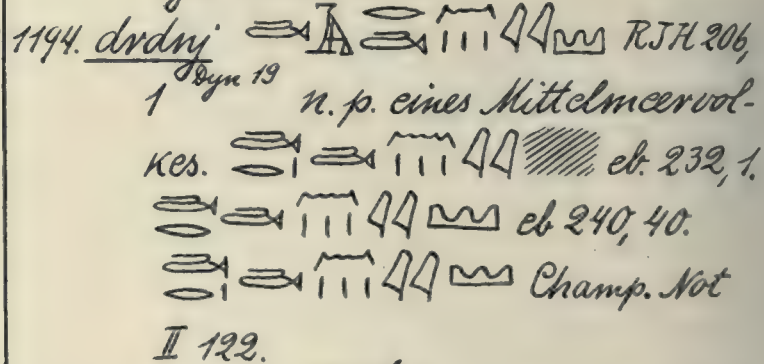 1194. drdnj RJH 206,
1 Dyn 19 n. p. eines Mittelmeervol-
kes. eb. 232, 1.
eb 240, 40.
Champ. Not
II 122.